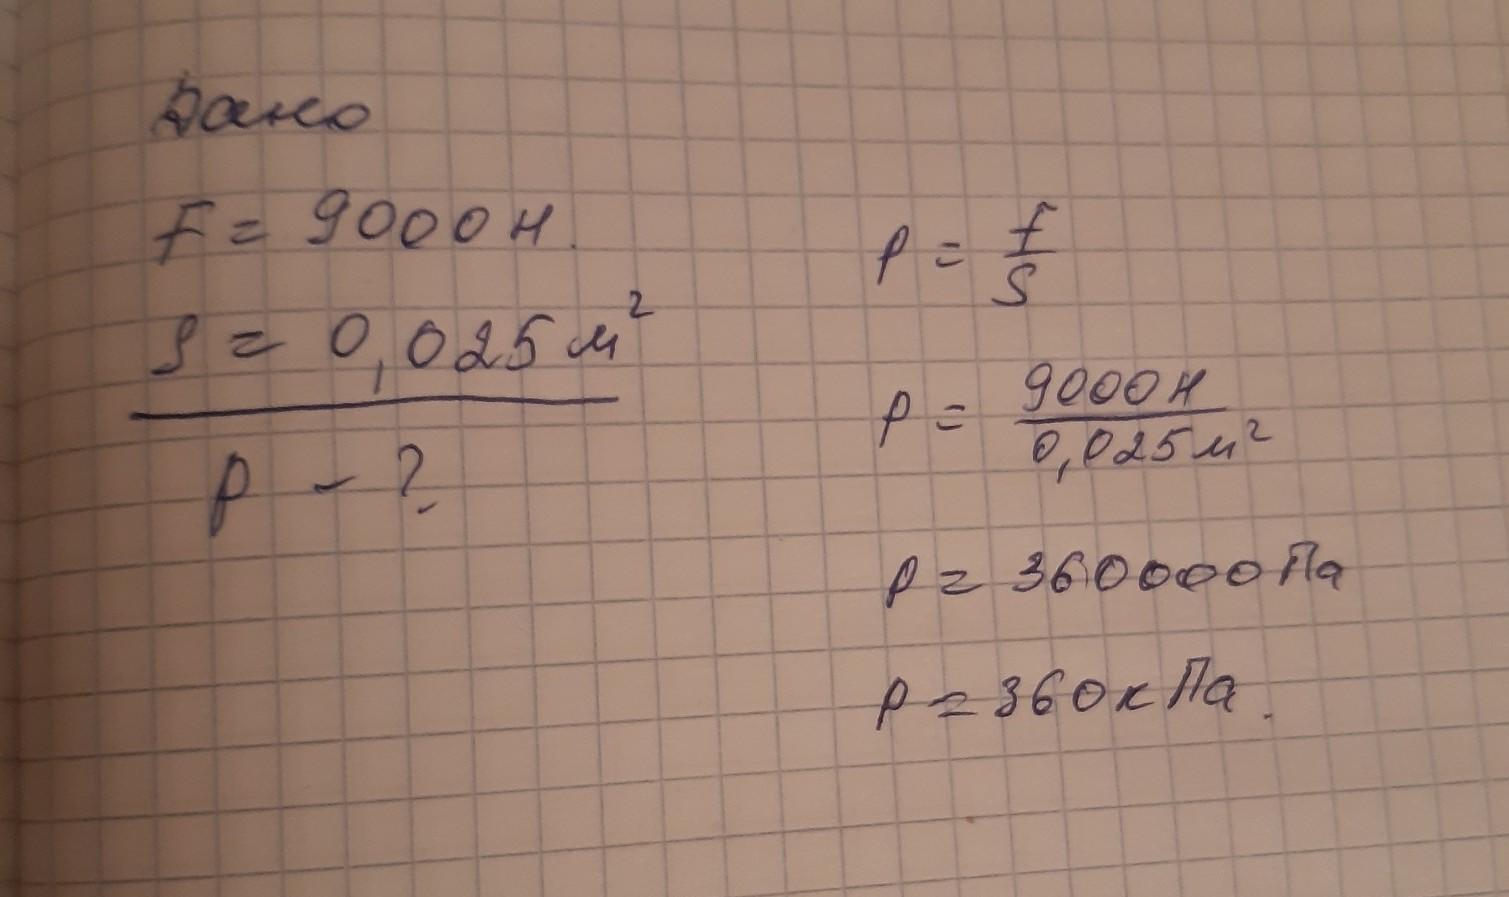 Дано
F = 9000 Н.
S = 0,025 м²
p - ?
p = F/S
p = 9000 Н / 0,025 м²
p = 360000 Па
p = 360 к Па.